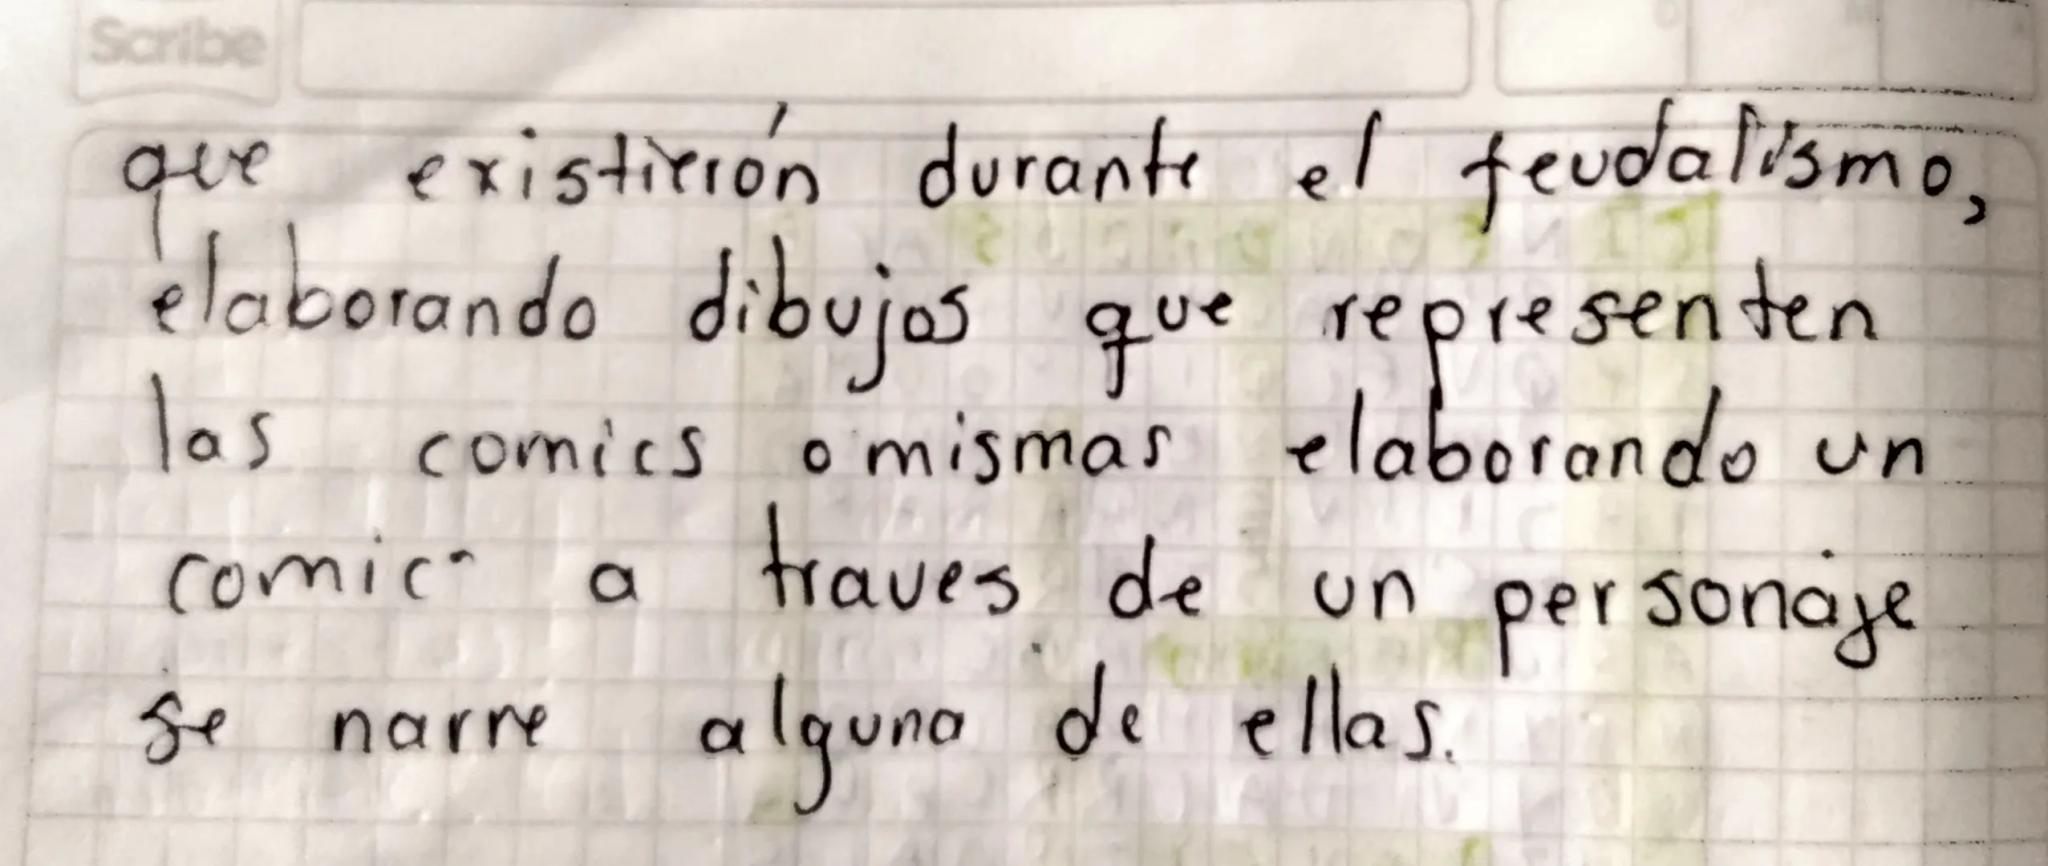 Scribe
que existierón durante el feudalismo,
elaborando dibujos que representen
las comics o mismas elaborando un
comic a traves de un personaje
se narre alguna de ellas.